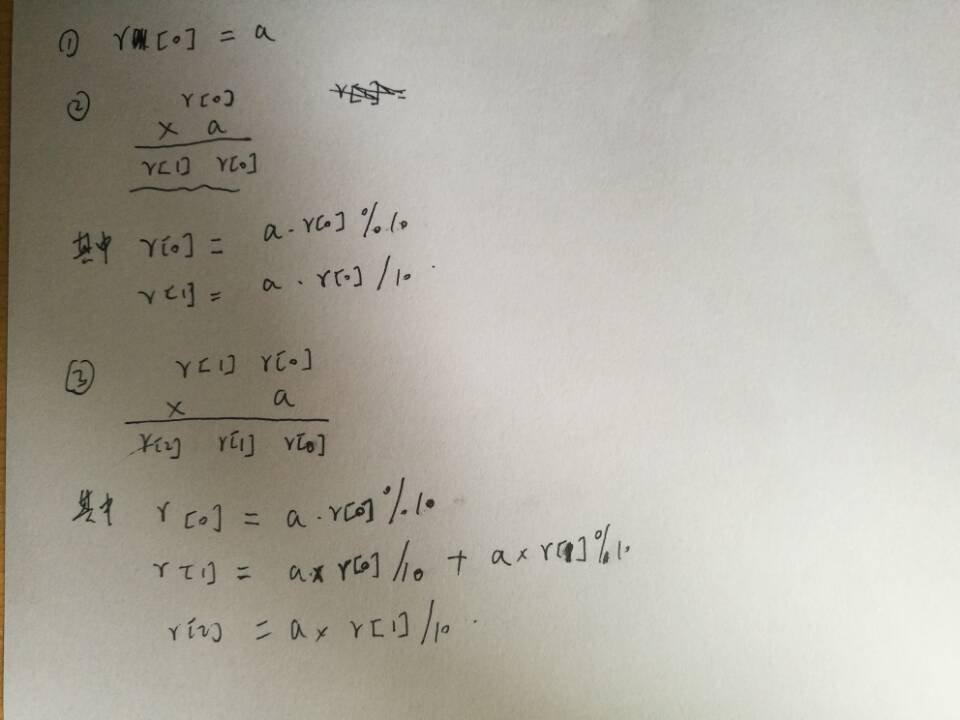 ① r[0] = a
② r[0]
× a
r[1] r[0]
其中 r[0] = a·r[0] % 10
r[1] = a·r[0] / 10
③ r[1] r[0]
× a
r[2] r[1] r[0]
其中 r[0] = a·r[0] % 10
r[1] = a×r[0]/10 + a×r[1]%10
r[2] = a×r[1]/10